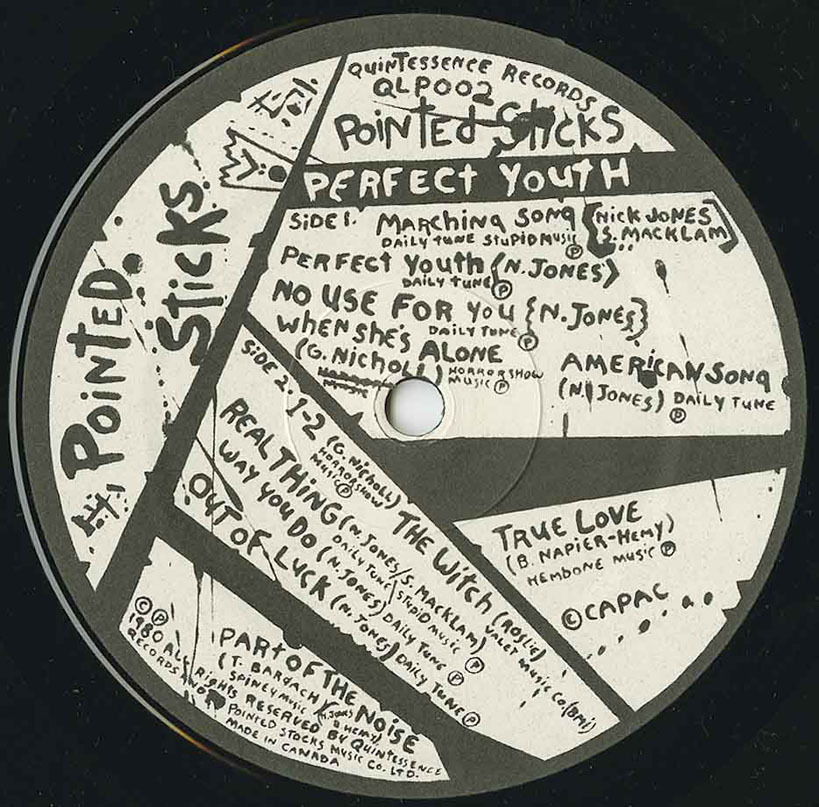 QUINTESSENCE RECORDS
QLP002
POINTED STICKS
PERFECT YOUTH
SIDE 1. MARCHING SONG [NICK JONES
S. MACKLAM]
DAILY TUNE STUPID MUSIC Ⓟ
PERFECT YOUTH (N. JONES)
DAILY TUNE Ⓟ
NO USE FOR YOU {N. JONES}
DAILY TUNE Ⓟ
WHEN SHE'S ALONE
(G. NICHOLL) HORRORSHOW
MUSIC Ⓟ
AMERICAN SONG
(N. JONES) DAILY TUNE
Ⓟ
TRUE LOVE
(B. NAPIER-HEMY)
HEMBONE MUSIC Ⓟ
©CAPAC
SIDE 2. 1-2 (G. NICHOLL)
HORRORSHOW
MUSIC Ⓟ
THE WITCH (ROSLIE)
VALET MUSIC CO (BMI)
REAL THING (N. JONES/S. MACKLAM)
DAILY TUNE/STUPID MUSIC Ⓟ
WAY YOU DO (N. JONES) DAILY TUNE Ⓟ
OUT OF LUCK (N. JONES) DAILY TUNE Ⓟ
PART OF THE NOISE
(T. BARDACH/
SPINEY MUSIC
© Ⓟ
1980 ALL RIGHTS RESERVED BY QUINTESSENCE
RECORDS POINTED STOCKS MUSIC CO. LTD.
MADE IN CANADA
POINTED
STICKS